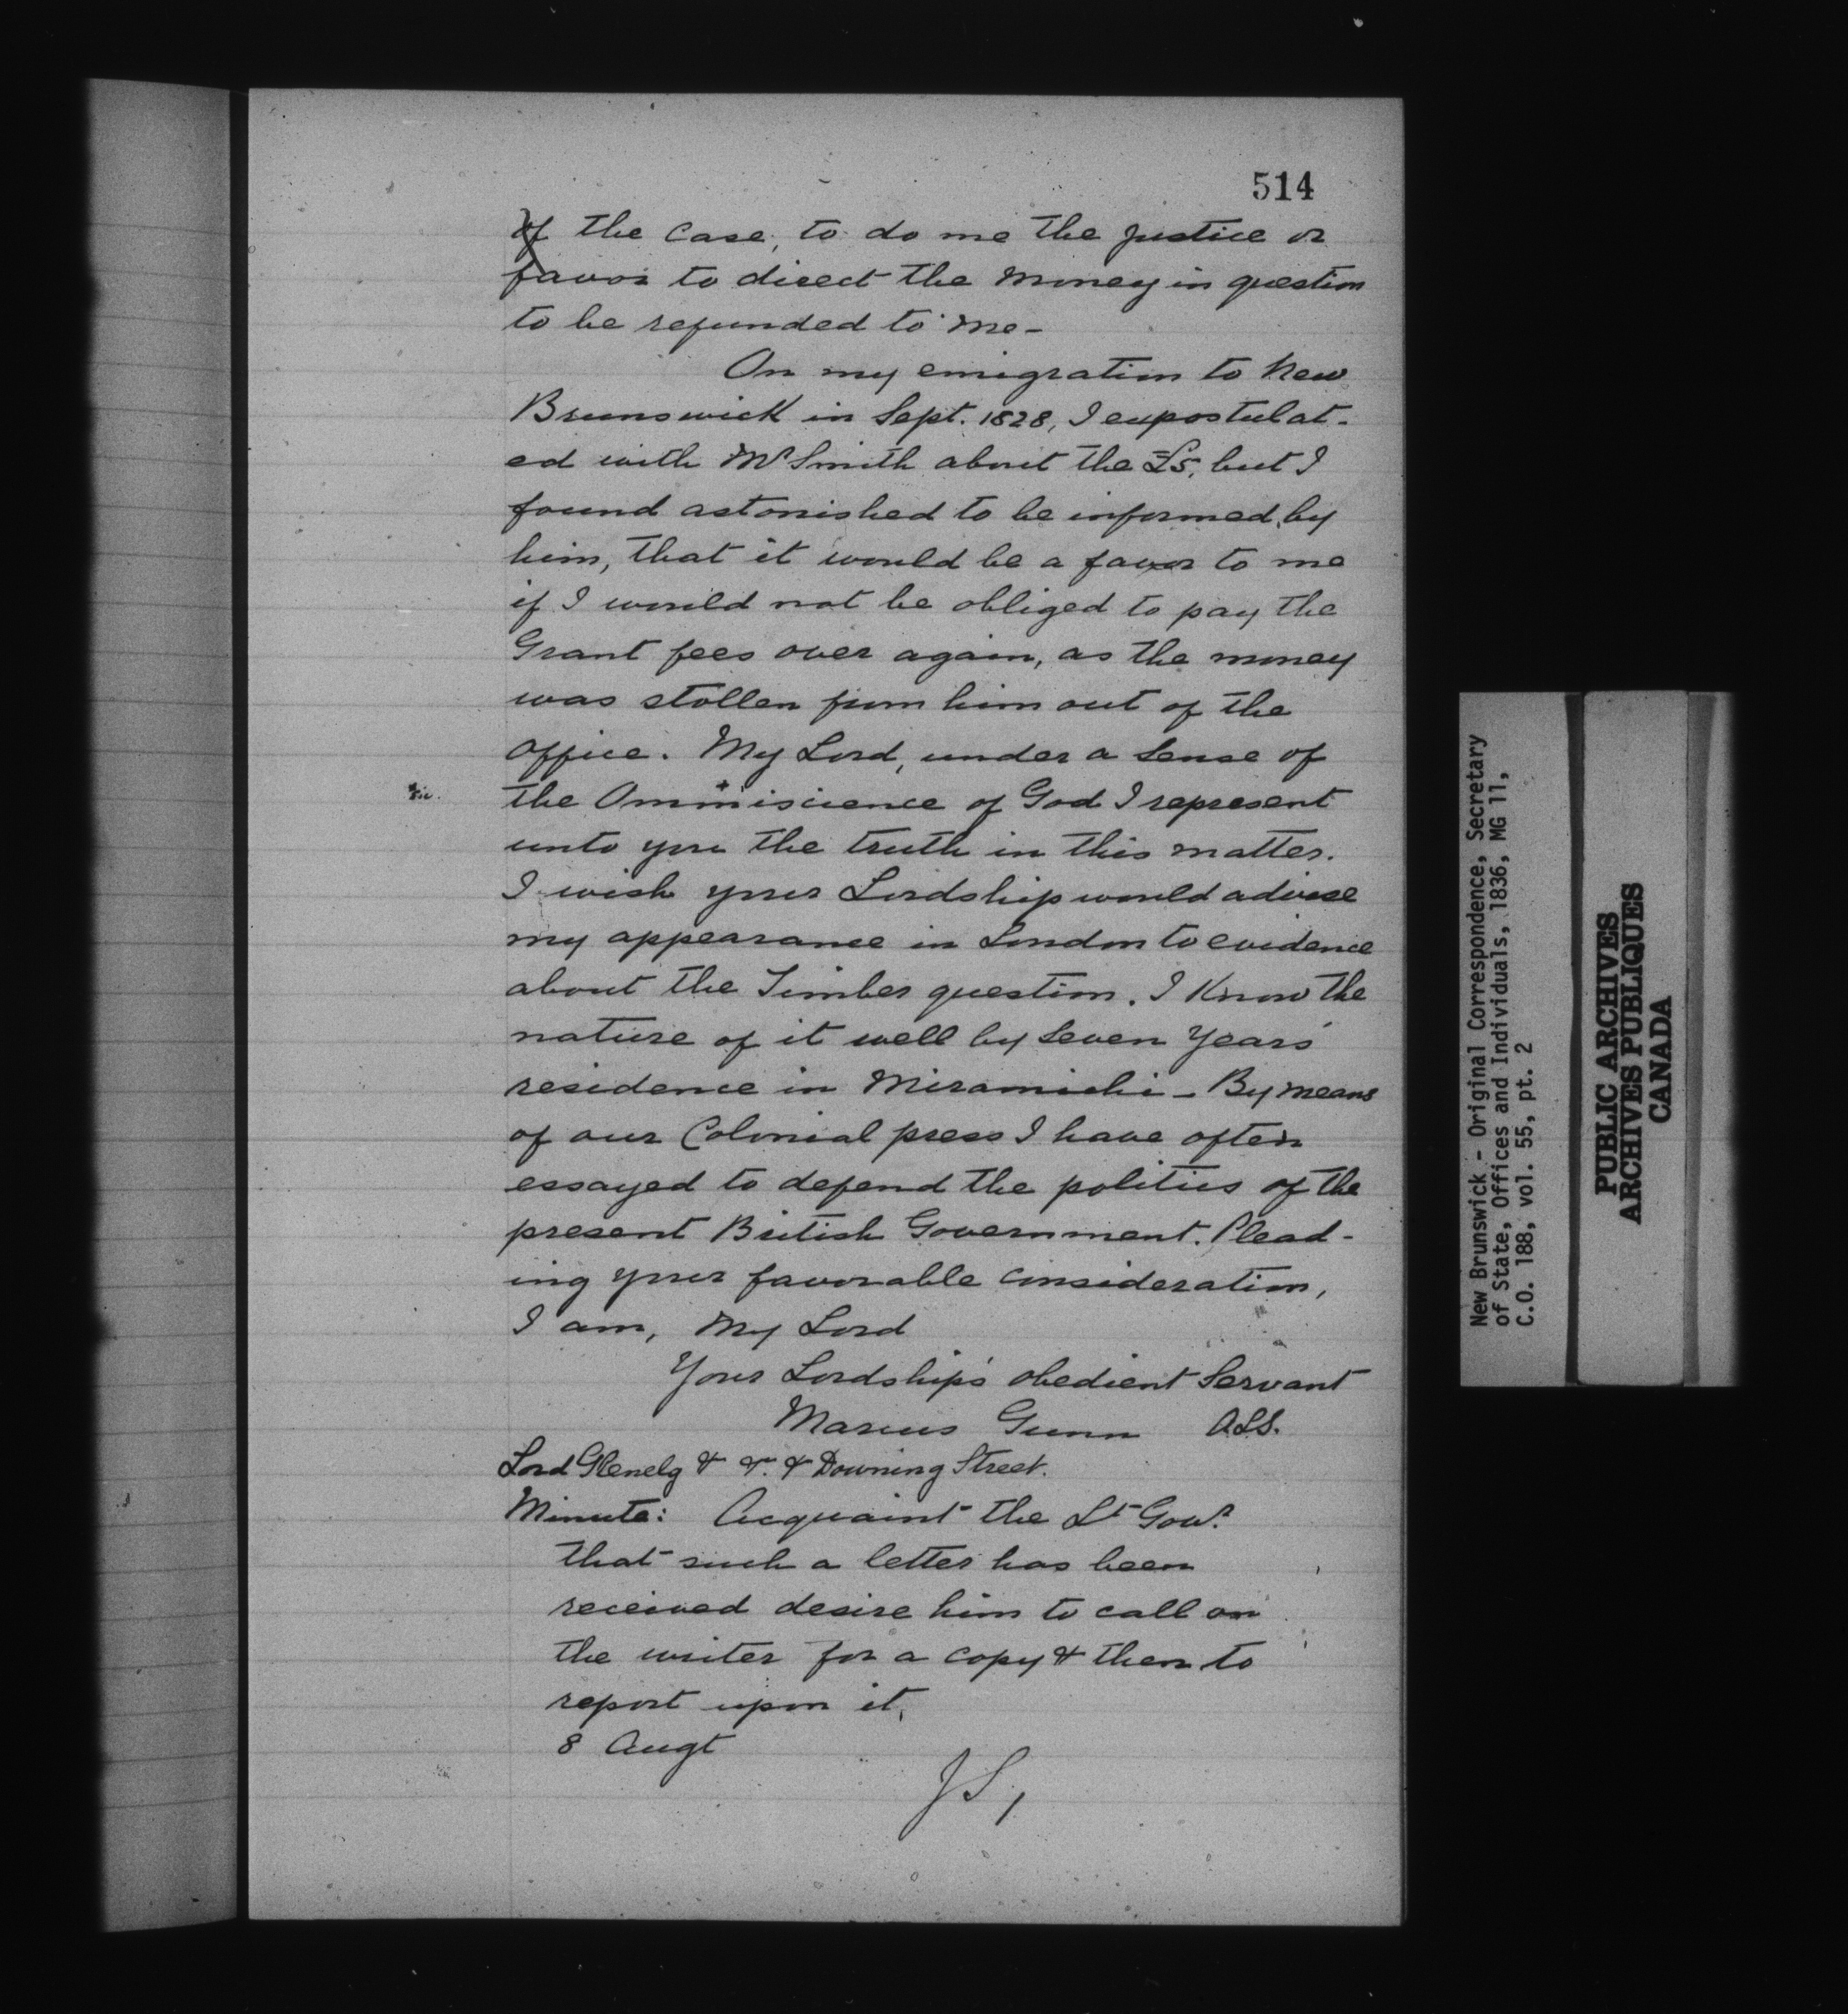 514
of the case, to do me the justice or
favor to direct the money in question
to be refunded to me -
On my emigration to New
Brunswick in Sept. 1828, I expostulat-
ed with Mr Smith about the £5, but I
found astonished to be informed by
him, that it would be a favor to me
if I would not be obliged to pay the
Grant fees over again, as the money
was stollen from him out of the
office. My Lord, under a sense of
sic. the Ommiscience of God I represent
unto you the truth in this matter.
I wish your Lordship would advise
my appearance in London to evidence
about the Timber question. I know the
nature of it well by seven years'
residence in Miramichi - By means
of our Colonial press I have often
essayed to defend the politics of the
present British Government. Plead-
ing your favorable consideration,
I am, My Lord
Your Lordship's obedient Servant
Marcus Gunn A.L.S.
Lord Glenelg & &. & Downing Street.
Minute: Acquaint the Lt Govr
that such a letter has been
received desire him to call on
the writer for a copy & then to
report upon it.
8 Augt
JS,
New Brunswick - Original Correspondence, Secretary
of State, Offices and Individuals, 1836, MG 11,
C.O. 188, vol. 55, pt. 2
PUBLIC ARCHIVES
ARCHIVES PUBLIQUES
CANADA